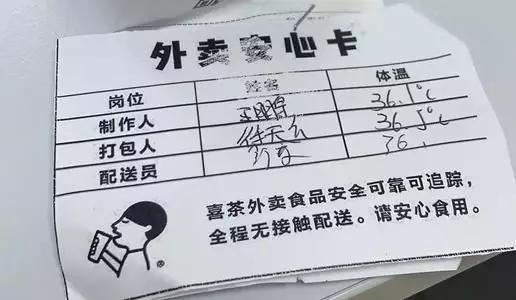 外卖安心卡
岗位 姓名 体温
制作人 36.1℃
打包人 36.5℃
配送员 36.
喜茶外卖食品安全可靠可追踪，
全程无接触配送。请安心食用。
®